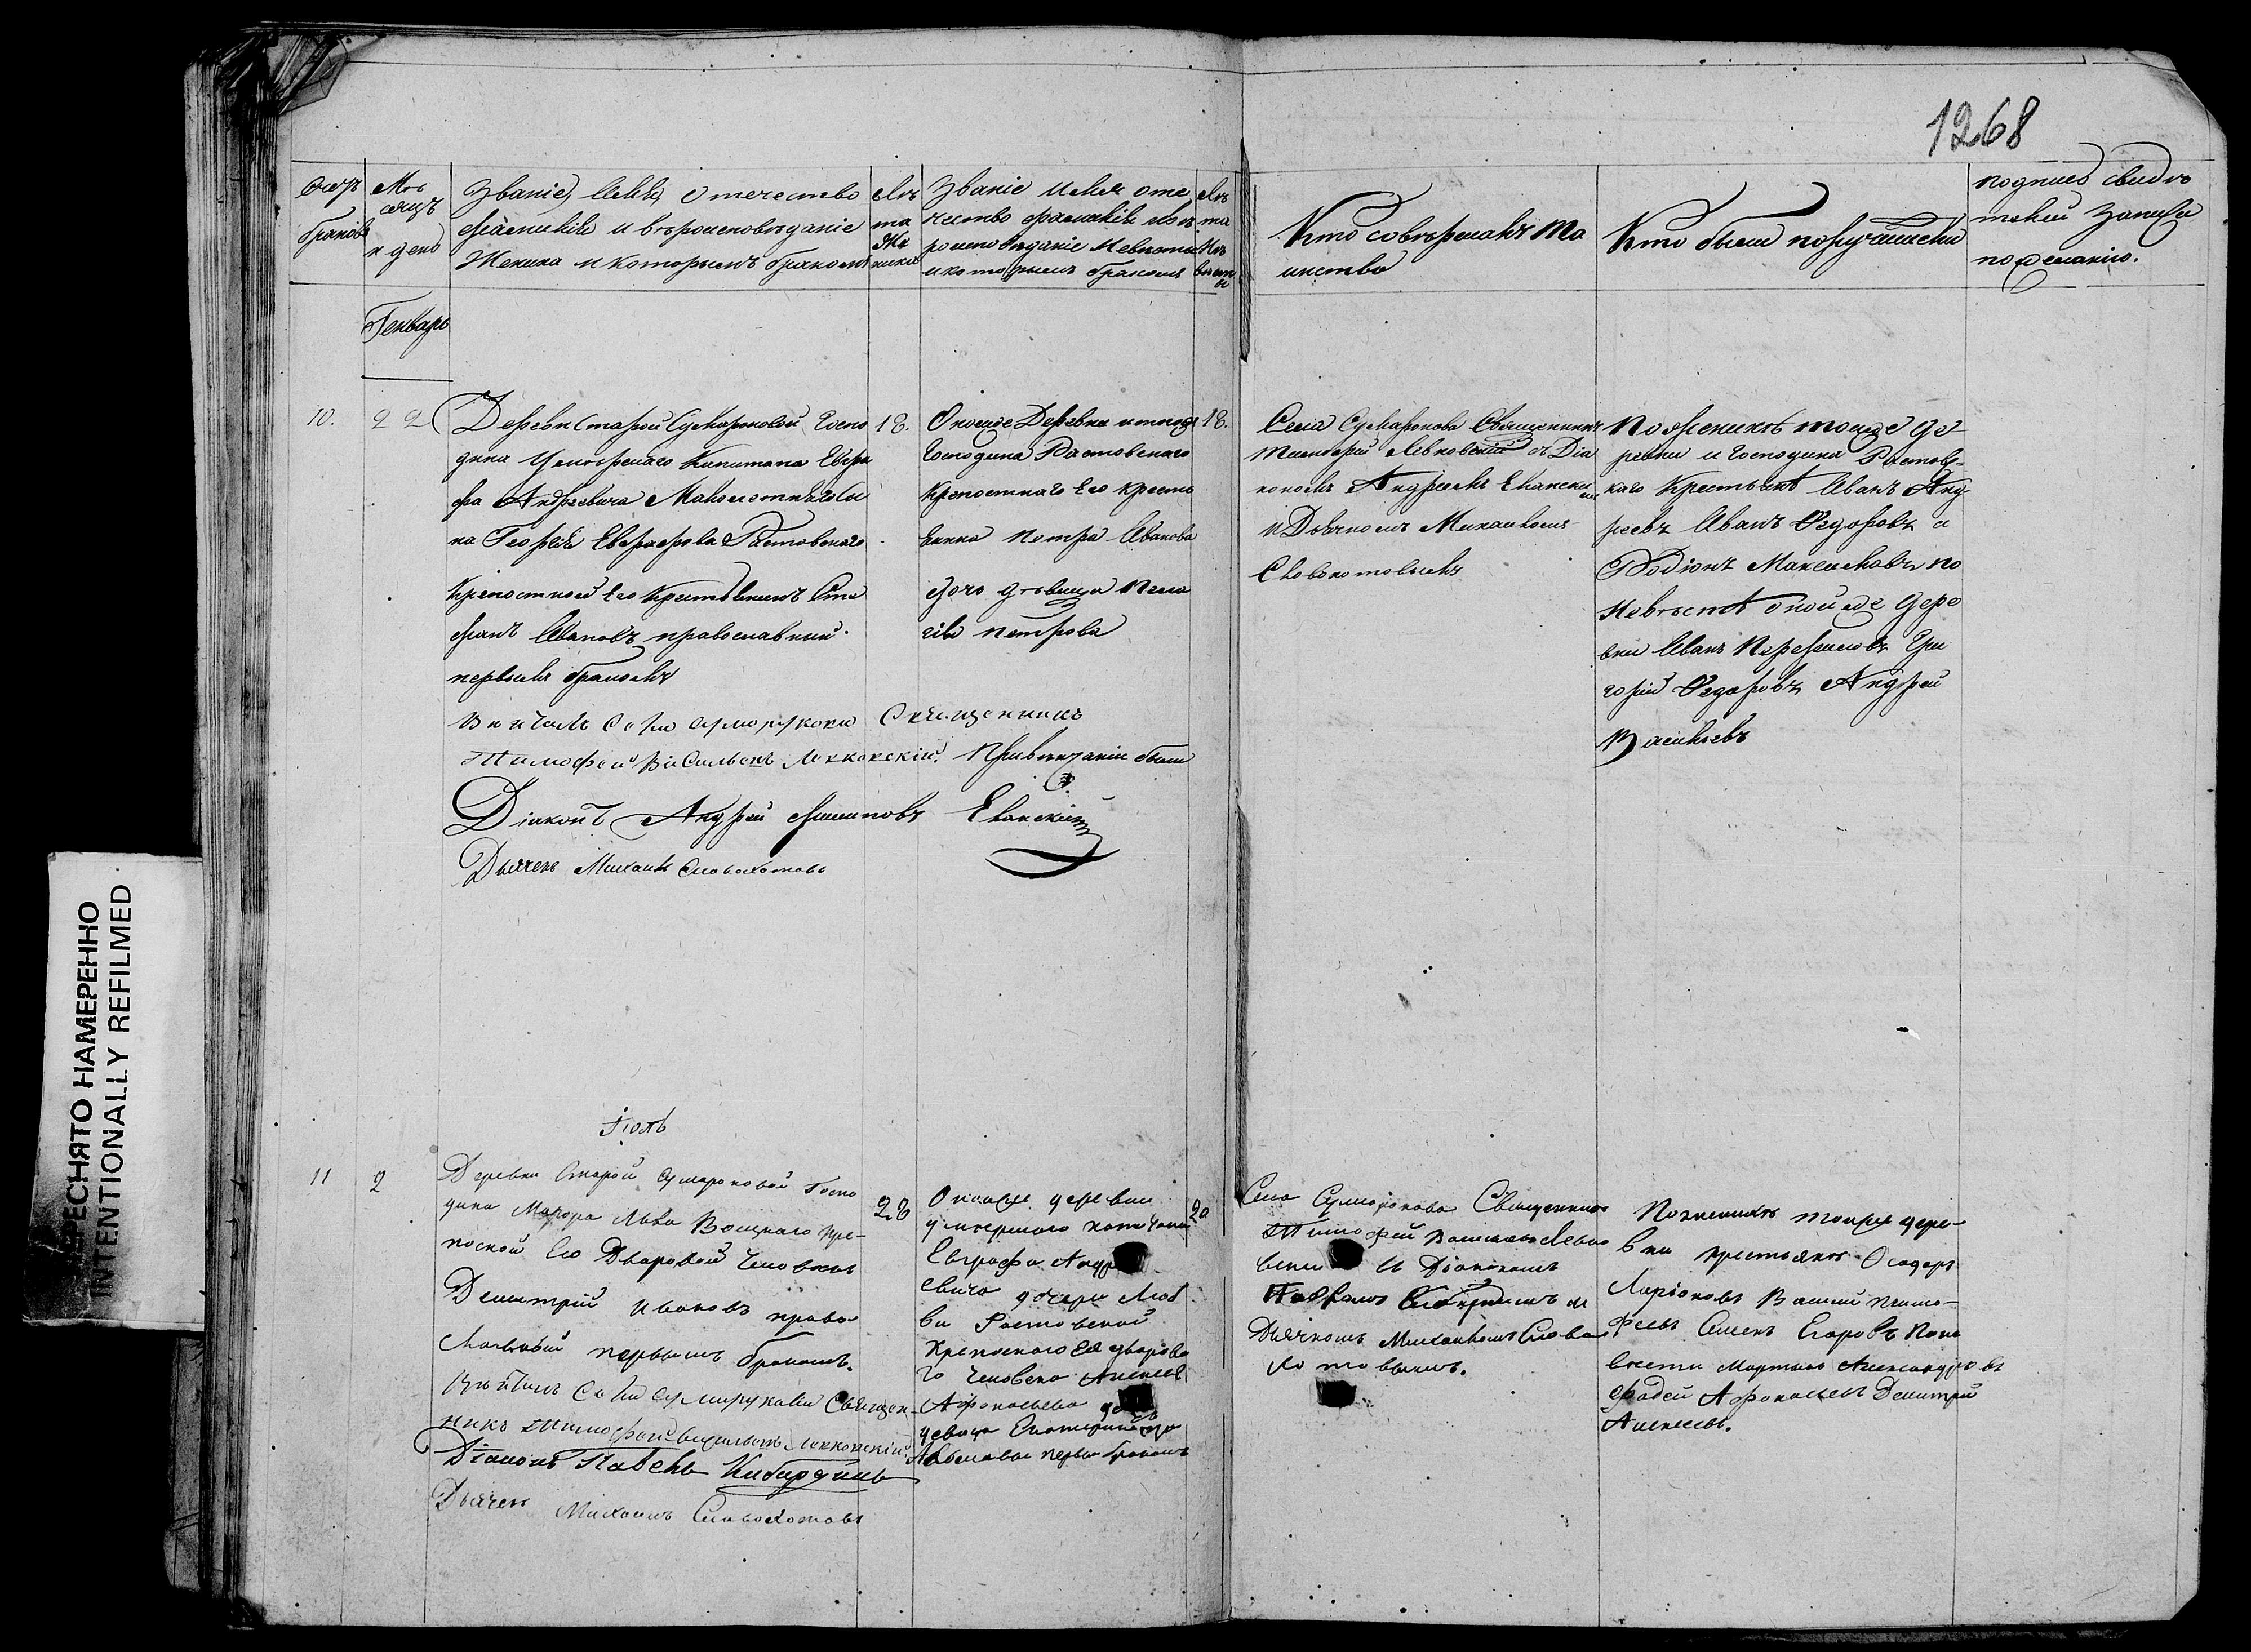 1268
Счетъ браковъ
Мѣсяцъ и день
Званіе, имя, отечество
фамилія и вѣроисповѣданіе
Жениха и которымъ бракомъ
Лѣта Жениха
Званіе имя оте
чество фамилія вѣ
роисповѣданіе Невѣсты
и которымъ бракомъ
Лѣта Невѣсты
Кто совершалъ Та
инство
Кто были поручители
подпись свидѣ
телей записи
по желанію.
Генварь
10.
22
Деревни Старой Сумароковой Госпо
дина Умершаго Капитана Евгра
фа Андреевича Малолетняго Сы
на Георгія Евграфова Растовскаго
Крепостной его Крестьянинъ Сте
фанъ Ивановъ православный
первымъ бракомъ
18.
Оной же Деревни и того же
Господина Растовскаго
Крепостнаго Его Кресть
янина Петра Иванова
дочь дѣвица Пела
гія Петрова
18.
Села Сумарокова Священникъ
Тимофей Левковскій съ Діа
кономъ Андреемъ Еланским
и Дьячкомъ Михаиломъ
Словохотовымъ
По Женихѣ тойже де
ревни и Господина Растовс
каго Крестьянѣ Иванъ Анд
реевъ Иванъ Федоровъ и
Родіонъ Максимовъ по
Невѣстѣ оной же дере
вни Иванъ Перфиловъ Гри
горій Федоровъ Андрей
Васильевъ
Вѣнчалъ Села Сумарукова Священникъ
Тимофей Васильевъ Левковскій. При венчаніи были
Діаконъ Андрей Филиповъ Еланскій
Дьячекъ Михаилъ Словохотовъ
Іюль
11
2
Деревни Старой Сумароковой Госпо
дина Маіора Льва Воецкаго кре-
поской Его Дворовой Человекъ
Димитрій Ивановъ право
славный первымъ бракомъ.
28
Оной же деревни
умершаго капитана
Евграфа Андре
евича дочери Люб
ви Растовской
Крепоскаго Ея дворова
го Человека Алексея
Афонасьева дочь
девица Екатерина
первы бракомъ
20
Села Сумарокова Священникъ
Тимофей Васильевъ Левко
вски и Діакономъ
Павломъ Кибардинымъ и
Дьячкомъ Михаиломъ Слово
хотовымъ.
По женихѣ тойже дере-
вни крестьянѣ Федоръ
Ларіоновъ Василій Тимо-
феевъ Семенъ Егоровъ По не
весты Мартынъ Александровъ
Фадей Афонасьевъ Димитрій
Алексеевъ.
Вѣнчалъ Села Сумарукова Священ-
никъ Тимофей Васильевъ Левковскій
Діаконъ Павелъ Кибардинъ
Дьячекъ Михаилъ Словохотовъ
ПЕРЕСНЯТО НАМЕРЕННО
INTENTIONALLY REFILMED